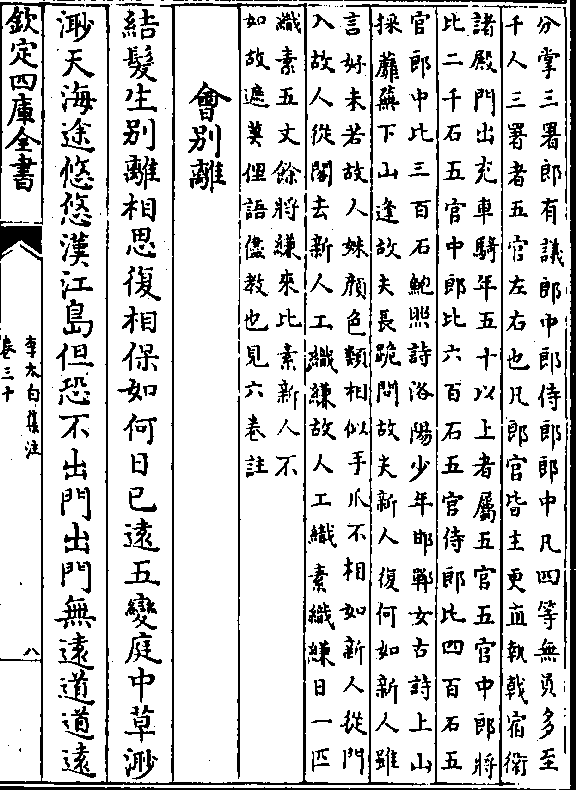 分掌三署郎有議郎中郎侍郎郎中凡四等無員多至
千人三署者五官左右也凡郎官皆主更直執戟宿衛
諸殿門出充車騎年五十以上者屬五官五官中郎將
比二千石五官中郎比六百石五官侍郎比四百石五
官郎中比三百石鮑照詩洛陽少年邯鄲女古詩上山
採蘼蕪下山逢故夫長跪問故夫新人復何如新人雖
言好未若故人姝顔色類相似手爪不相如新人從門
入故人從閤去新人工織縑故人工織素織縑日一匹
織素五丈餘將縑來比素新人不
如故遮莫俚語儘教也見六卷註
會别離
結髮生别離相思復相保如何日已遠五變庭中草渺
渺天海途悠悠漢江島但恐不出門出門無遠道道遠
欽定四庫全書
李太白集注
卷三十
八